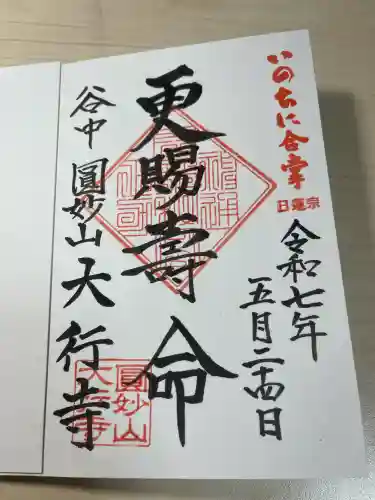 いのちに合掌
日蓮宗
令和七年
五月二十四日
更賜壽命
谷中 圓妙山 大行寺
圓妙山
大行寺